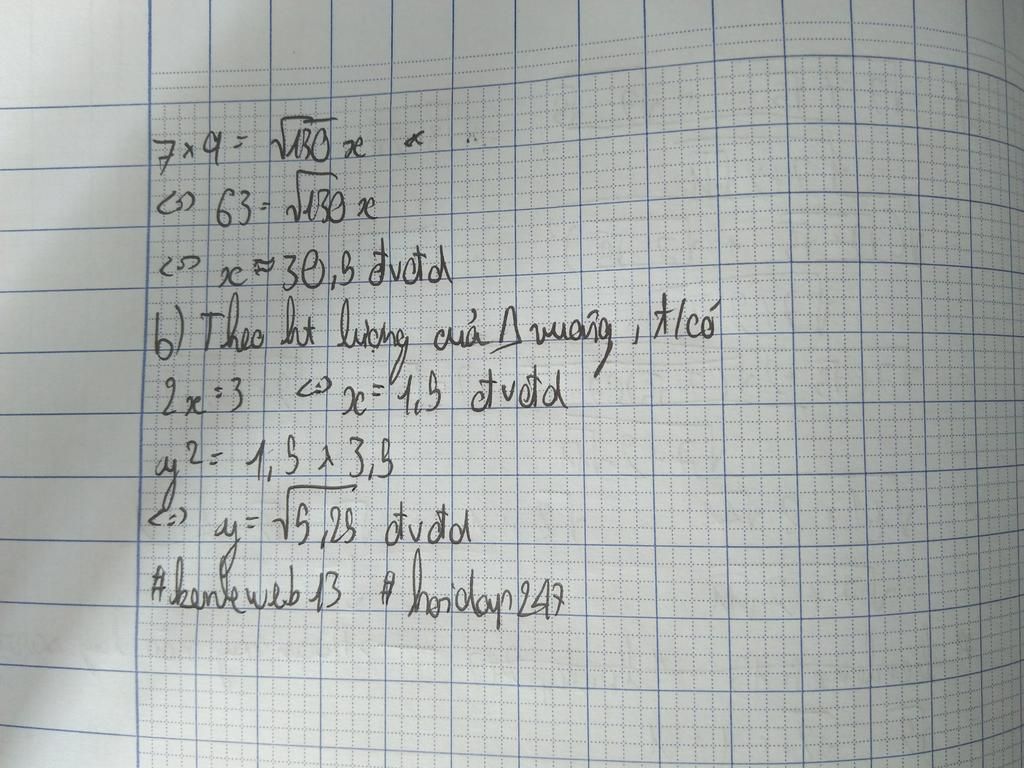 7 × 9 = √130 x
<=> 63 = √130 x
<=> x ≈ 30,5 đvđd
b) Theo ht lượng của Δ vuông, t/có
2x = 3 <=> x = 1,5 đvđd
y² = 1,5 × 3,5
<=> y = √5,25 đvđd
#kenteweb13 #hoidap247